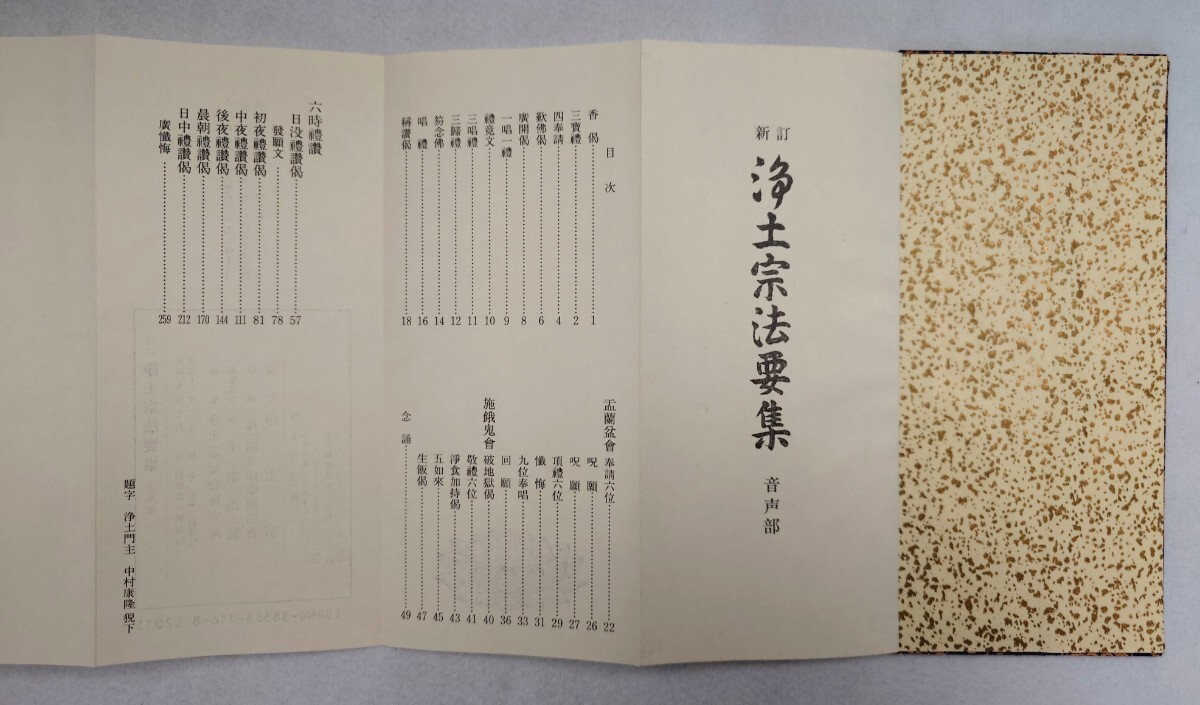 新訂
浄土宗法要集 音声部
目次
香偈……1
三寶禮……2
四奉請……4
歎佛偈……6
廣開偈……8
一唱一禮……9
禮竟文……10
三唱禮……11
三歸禮……12
笏念佛……14
唱禮……16
稱讃偈……18
盂蘭盆會 奉請六位……22
呪願……26
呪願……27
項禮六位……29
懺悔……31
九位奉唱……33
回願……36
施餓鬼會 破地獄偈……40
敬禮六位……41
淨食加持偈……43
五如來……45
生飯偈……47
念誦……49
六時禮讃
日没禮讃偈……57
發願文……78
初夜禮讃偈……81
中夜禮讃偈……111
後夜禮讃偈……144
晨朝禮讃偈……170
日中禮讃偈……212
廣懺悔……259
題字 浄土門主 中村康隆 猊下